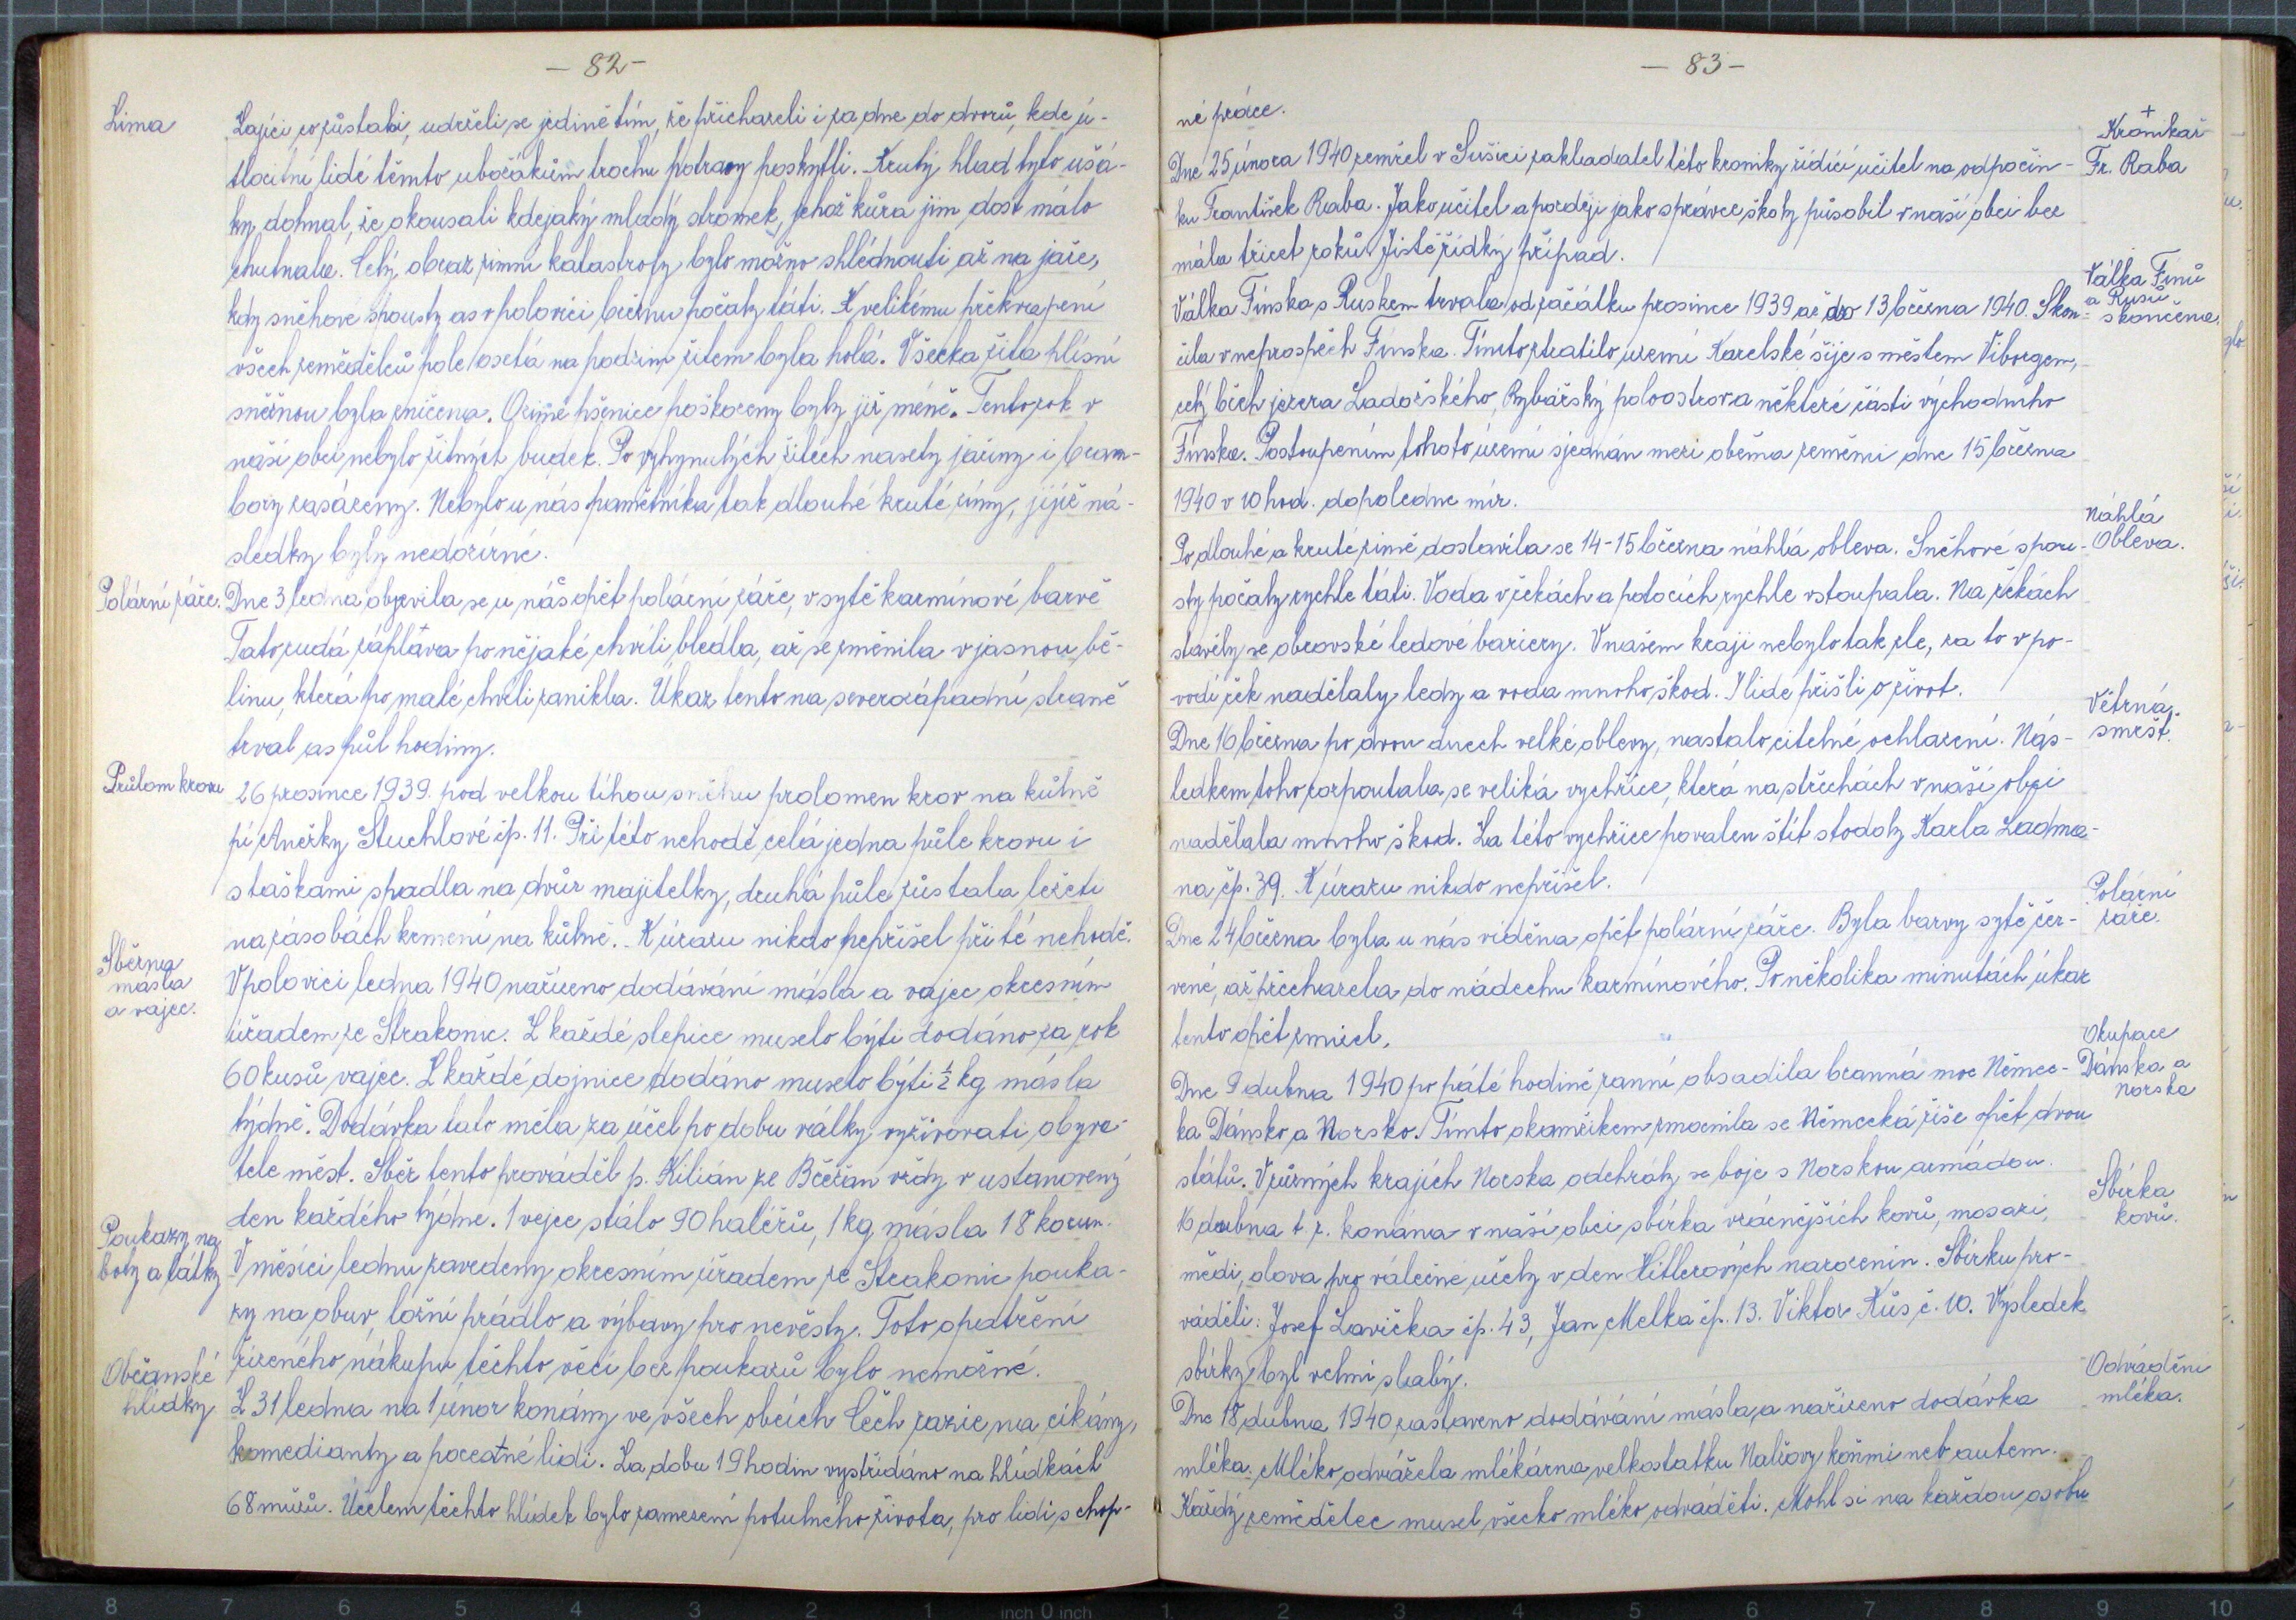 — 82 —
Zima
Zajíci, co zůstali, udrželi se jedině tím, že přicházeli i za dne do dvorů, kde ú-
tlocitní lidé těmto ubožákům trochu potravy poskytli. Krutý hlad tyto ušá-
ky dohnal, že okousali kdejaký mladý stromek, jehož kůra jim dost málo
chutnala. Celý obraz zimní katastrofy bylo možno shlédnouti až na jaře,
kdy sněhové spousty as v polovici března počaly táti. K velikému překvapení
všech zemědělců pole osetá na podzim žitem byla holá. Všecka žita plísní
sněžnou byla zničena. Ozimé pšenice poškozeny byly již méně. Tento rok v
naší obci nebylo žitných budek. Po vyhynulých žitech nasety jařiny i bram-
bory zasázeny. Nebylo u nás pamětníka tak dlouhé kruté zimy, jejíž ná-
sledky byly nedozírné.
Polární záře.
Dne 3 ledna objevila se u nás opět polární záře, v sytě karmínové barvě
Tato rudá záplava po nějaké chvíli bledla, až se změnila v jasnou bě-
linu, která po malé chvíli zanikla. Úkaz tento na severozápadní straně
trval as půl hodiny.
Průlom krovu
26 prosince 1939. pod velkou tíhou sněhu prolomen krov na kůlně
pí Anežky Stuchlové čp. 11. Při této nehodě celá jedna půle krovu i
s taškami spadla na dvůr majitelky, druhá půle zůstala ležeti
na zásobách krmení na kůlně. K úrazu nikdo nepřišel při té nehodě.
Sběrna
másla
a vajec.
V polovici ledna 1940 nařízeno dodávání másla a vajec okresním
úřadem ze Strakonic. Z každé slepice muselo býti dodáno za rok
60 kusů vajec. Z každé dojnice dodáno muselo býti ½ kg másla
týdně. Dodávka tato měla za účel po dobu války vyživovati obyva-
tele měst. Sběr tento prováděl p. Kilián ze Břežan vždy v ustanovený
den každého týdne. 1 vejce stálo 90 haléřů, 1 kg másla 18 korun.
Poukazy na
boty a látky
V měsíci lednu zavedeny okresním úřadem ze Strakonic pouka-
zy na obuv, ložní prádlo a výbavy pro nevěsty. Toto opatření
řízeného nákupu těchto věcí bez poukazů bylo nemožné.
Občanské
hlídky
Z 31 ledna na 1 únor konány ve všech obcích Čech razie na cikány,
komedianty a pocestné lidi. Za dobu 19 hodin vystřídáno na hlídkách
68 mužů. Účelem těchto hlídek bylo zamezení potulného života, pro lidi s chop-
— 83 —
né práce.
+
Kronikář
Fr. Raba
Dne 25 února 1940 zemřel v Sušici zakladatel této kroniky řídící učitel na odpočin-
ku František Raba. Jako učitel a později jako správce školy působil v naší obci bez
mála třicet roků. Jistě řídký případ.
Válka Finů
a Rusů
skončena.
Válka Finska s Ruskem trvala od začátku prosince 1939 až do 13 března 1940. Skon-
čila v neprospěch Finska. Tímto ztratilo území Karelské šíje s městem Viborgem,
celý břeh jezera Ladožského, Rybářský poloostrov a některé části východního
Finska. Postoupením tohoto území sjednán mezi oběma zeměmi dne 15 března
1940 v 10 hod. dopoledne mír.
Náhlá
Obleva.
Po dlouhé a kruté zimě dostavila se 14-15 března náhlá obleva. Sněhové spou-
sty počaly rychle táti. Voda v řekách a potocích rychle vstoupala. Na řekách
stavěly se obrovské ledové bariery. V našem kraji nebylo tak zle, za to v po-
vodí řek nadělaly ledy a voda mnoho škod. I lidé přišli o život.
Větrná
smršť.
Dne 16 března po dvou dnech velké oblevy, nastalo citelné ochlazení. Nás-
ledkem toho rozpoutala se veliká vychřice, která na střechách v naší obci
nadělala mnoho škod. Za této vychřice povalen štít stodoly Karla Ladma-
na čp. 39. K úrazu nikdo nepřišel.
Polární
záře.
Dne 24 března byla u nás viděna opět polární záře. Byla barvy sytě čer-
vené, až přecházela do nádechu karmínového. Po několika minutách úkaz
tento opět zmizel.
Okupace
Dánska a
Norska
Dne 9 dubna 1940 po páté hodině ranní obsadila branná moc Němec-
ka Dánsko a Norsko. Tímto okamžikem zmocnila se Německá říše opět dvou
států. V různých krajích Norska odehrály se boje s Norskou armádou.
Sbírka
kovů.
16 dubna t. r. konána v naší obci sbírka vzácnějších kovů, mosazi,
mědi, olova pro válečné účely v den Hitlerových narozenin. Sbírku pro-
váděli: Josef Lavička čp. 43, Jan Melka čp. 13. Viktor Kůs č. 10. Výsledek
sbírky byl velmi slabý.
Odvádění
mléka.
Dne 18 dubna 1940 zastaveno dodávání másla, a nařízeno dodávka
mléka. Mléko odvážela mlékárna velkostatku Nalžovy koňmi neb autem.
Každý zemědělec musel všecko mléko odváděti. Mohl si na každou osobu
8 7 6 5 4 3 2 1 inch 0 inch 1 2 3 4 5 6 7 8 9 10